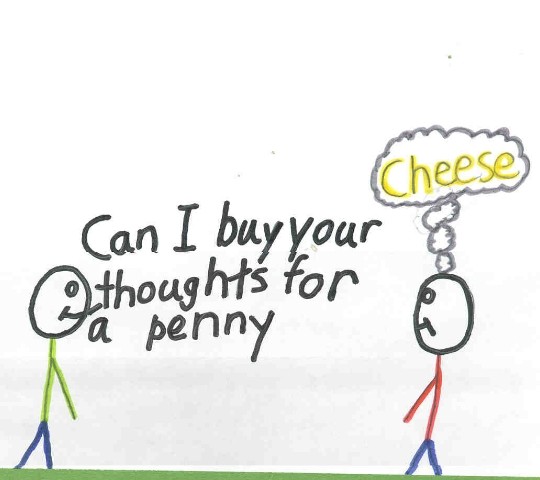 Cheese
Can I buy your
thoughts for
a penny